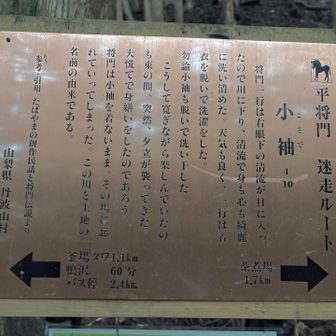 平将門 迷走ルート
こそで
小袖 4/10
将門一行は右眼下の清流が目に入っ
たので川に下り、清流で身も心も綺麗
に洗い清めた。天気も良く、一行は着
衣を脱いで洗濯をした。
勿論小袖も脱いで洗い干した。
こうして寛ぎながら楽しんでいたの
も束の間、突然、夕立が襲ってきた。
大慌てで身繕いをしたのであろう
将門は小袖を着ないまま、その場に忘
れていってしまった。この川と土地の
名前の由来である。
参考・引用 たばやまの創作民話と将門伝説より
山梨県 丹波山村
釜場タワ 1,1km
鴨沢 60分
バス停 2,4km
茶煮場
1,7km